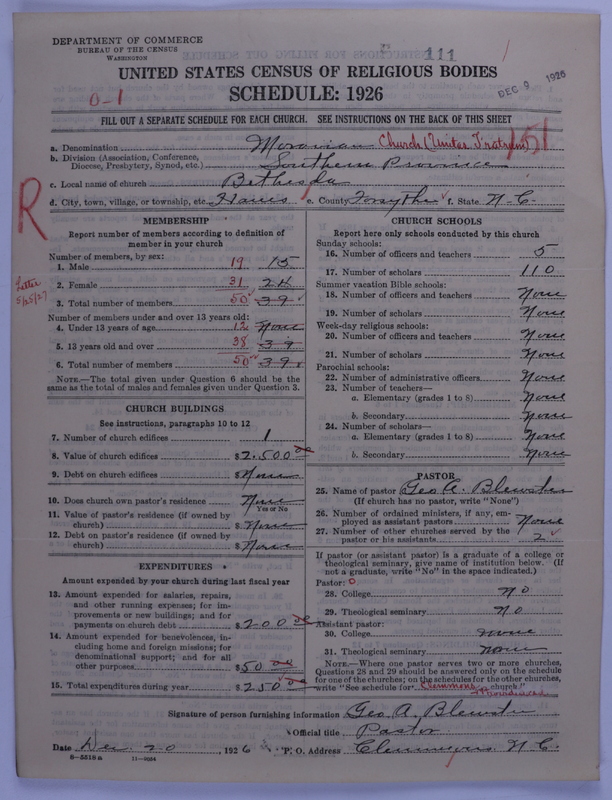 DEPARTMENT OF COMMERCE
BUREAU OF THE CENSUS
WASHINGTON
111
UNITED STATES CENSUS OF RELIGIOUS BODIES
SCHEDULE: 1926
DEC 9 1926
0-1
FILL OUT A SEPARATE SCHEDULE FOR EACH CHURCH. SEE INSTRUCTIONS ON THE BACK OF THIS SHEET
a. Denomination Moravian Church (Unitas Fratrum) 151
b. Division (Association, Conference, Diocese, Presbytery, Synod, etc.) Southern Province
c. Local name of church Bethesda
d. City, town, village, or township, etc. Hanes e. County Forsythe f. State N. C.
R
MEMBERSHIP
Report number of members according to definition of member in your church
Number of members, by sex:
1. Male 19 15
Letter 5/25/27
2. Female 31 24
3. Total number of members 50 39
Number of members under and over 13 years old:
4. Under 13 years of age 12 None
5. 13 years old and over 38 39
6. Total number of members 50 39
NOTE.—The total given under Question 6 should be the same as the total of males and females given under Question 3.
CHURCH BUILDINGS
See instructions, paragraphs 10 to 12
7. Number of church edifices 1
8. Value of church edifices $2.500 00
9. Debt on church edifices $None
10. Does church own pastor's residence None
Yes or No
11. Value of pastor's residence (if owned by church) $None
12. Debt on pastor's residence (if owned by church) $None
EXPENDITURES
Amount expended by your church during last fiscal year
13. Amount expended for salaries, repairs, and other running expenses; for improvements or new buildings; and for payments on church debt $200 00
14. Amount expended for benevolences, including home and foreign missions; for denominational support; and for all other purposes $50 00
15. Total expenditures during year $250 00
CHURCH SCHOOLS
Report here only schools conducted by this church
Sunday schools:
16. Number of officers and teachers 5
17. Number of scholars 110
Summer vacation Bible schools:
18. Number of officers and teachers None
19. Number of scholars None
Week-day religious schools:
20. Number of officers and teachers None
21. Number of scholars None
Parochial schools:
22. Number of administrative officers None
23. Number of teachers—
a. Elementary (grades 1 to 8) None
b. Secondary None
24. Number of scholars—
a. Elementary (grades 1 to 8) None
b. Secondary None
PASTOR
25. Name of pastor Geo. A. Blewster
(If church has no pastor, write "None")
26. Number of ordained ministers, if any, employed as assistant pastors None
27. Number of other churches served by the pastor or his assistants 2
If pastor (or assistant pastor) is a graduate of a college or theological seminary, give name of institution below. (If not a graduate, write "No" in the space indicated.)
Pastor: 0
28. College No
29. Theological seminary No
Assistant pastor:
30. College none
31. Theological seminary none
NOTE.—Where one pastor serves two or more churches, Questions 28 and 29 should be answered only on the schedule for one of the churches; on the schedules for the other churches, write "See schedule for Clemmons church."
Signature of person furnishing information Geo. A. Blewster
Official title Pastor
Date Dec. 20 1926 P. O. Address Clemmons N. C.
8-5518a 11-9264